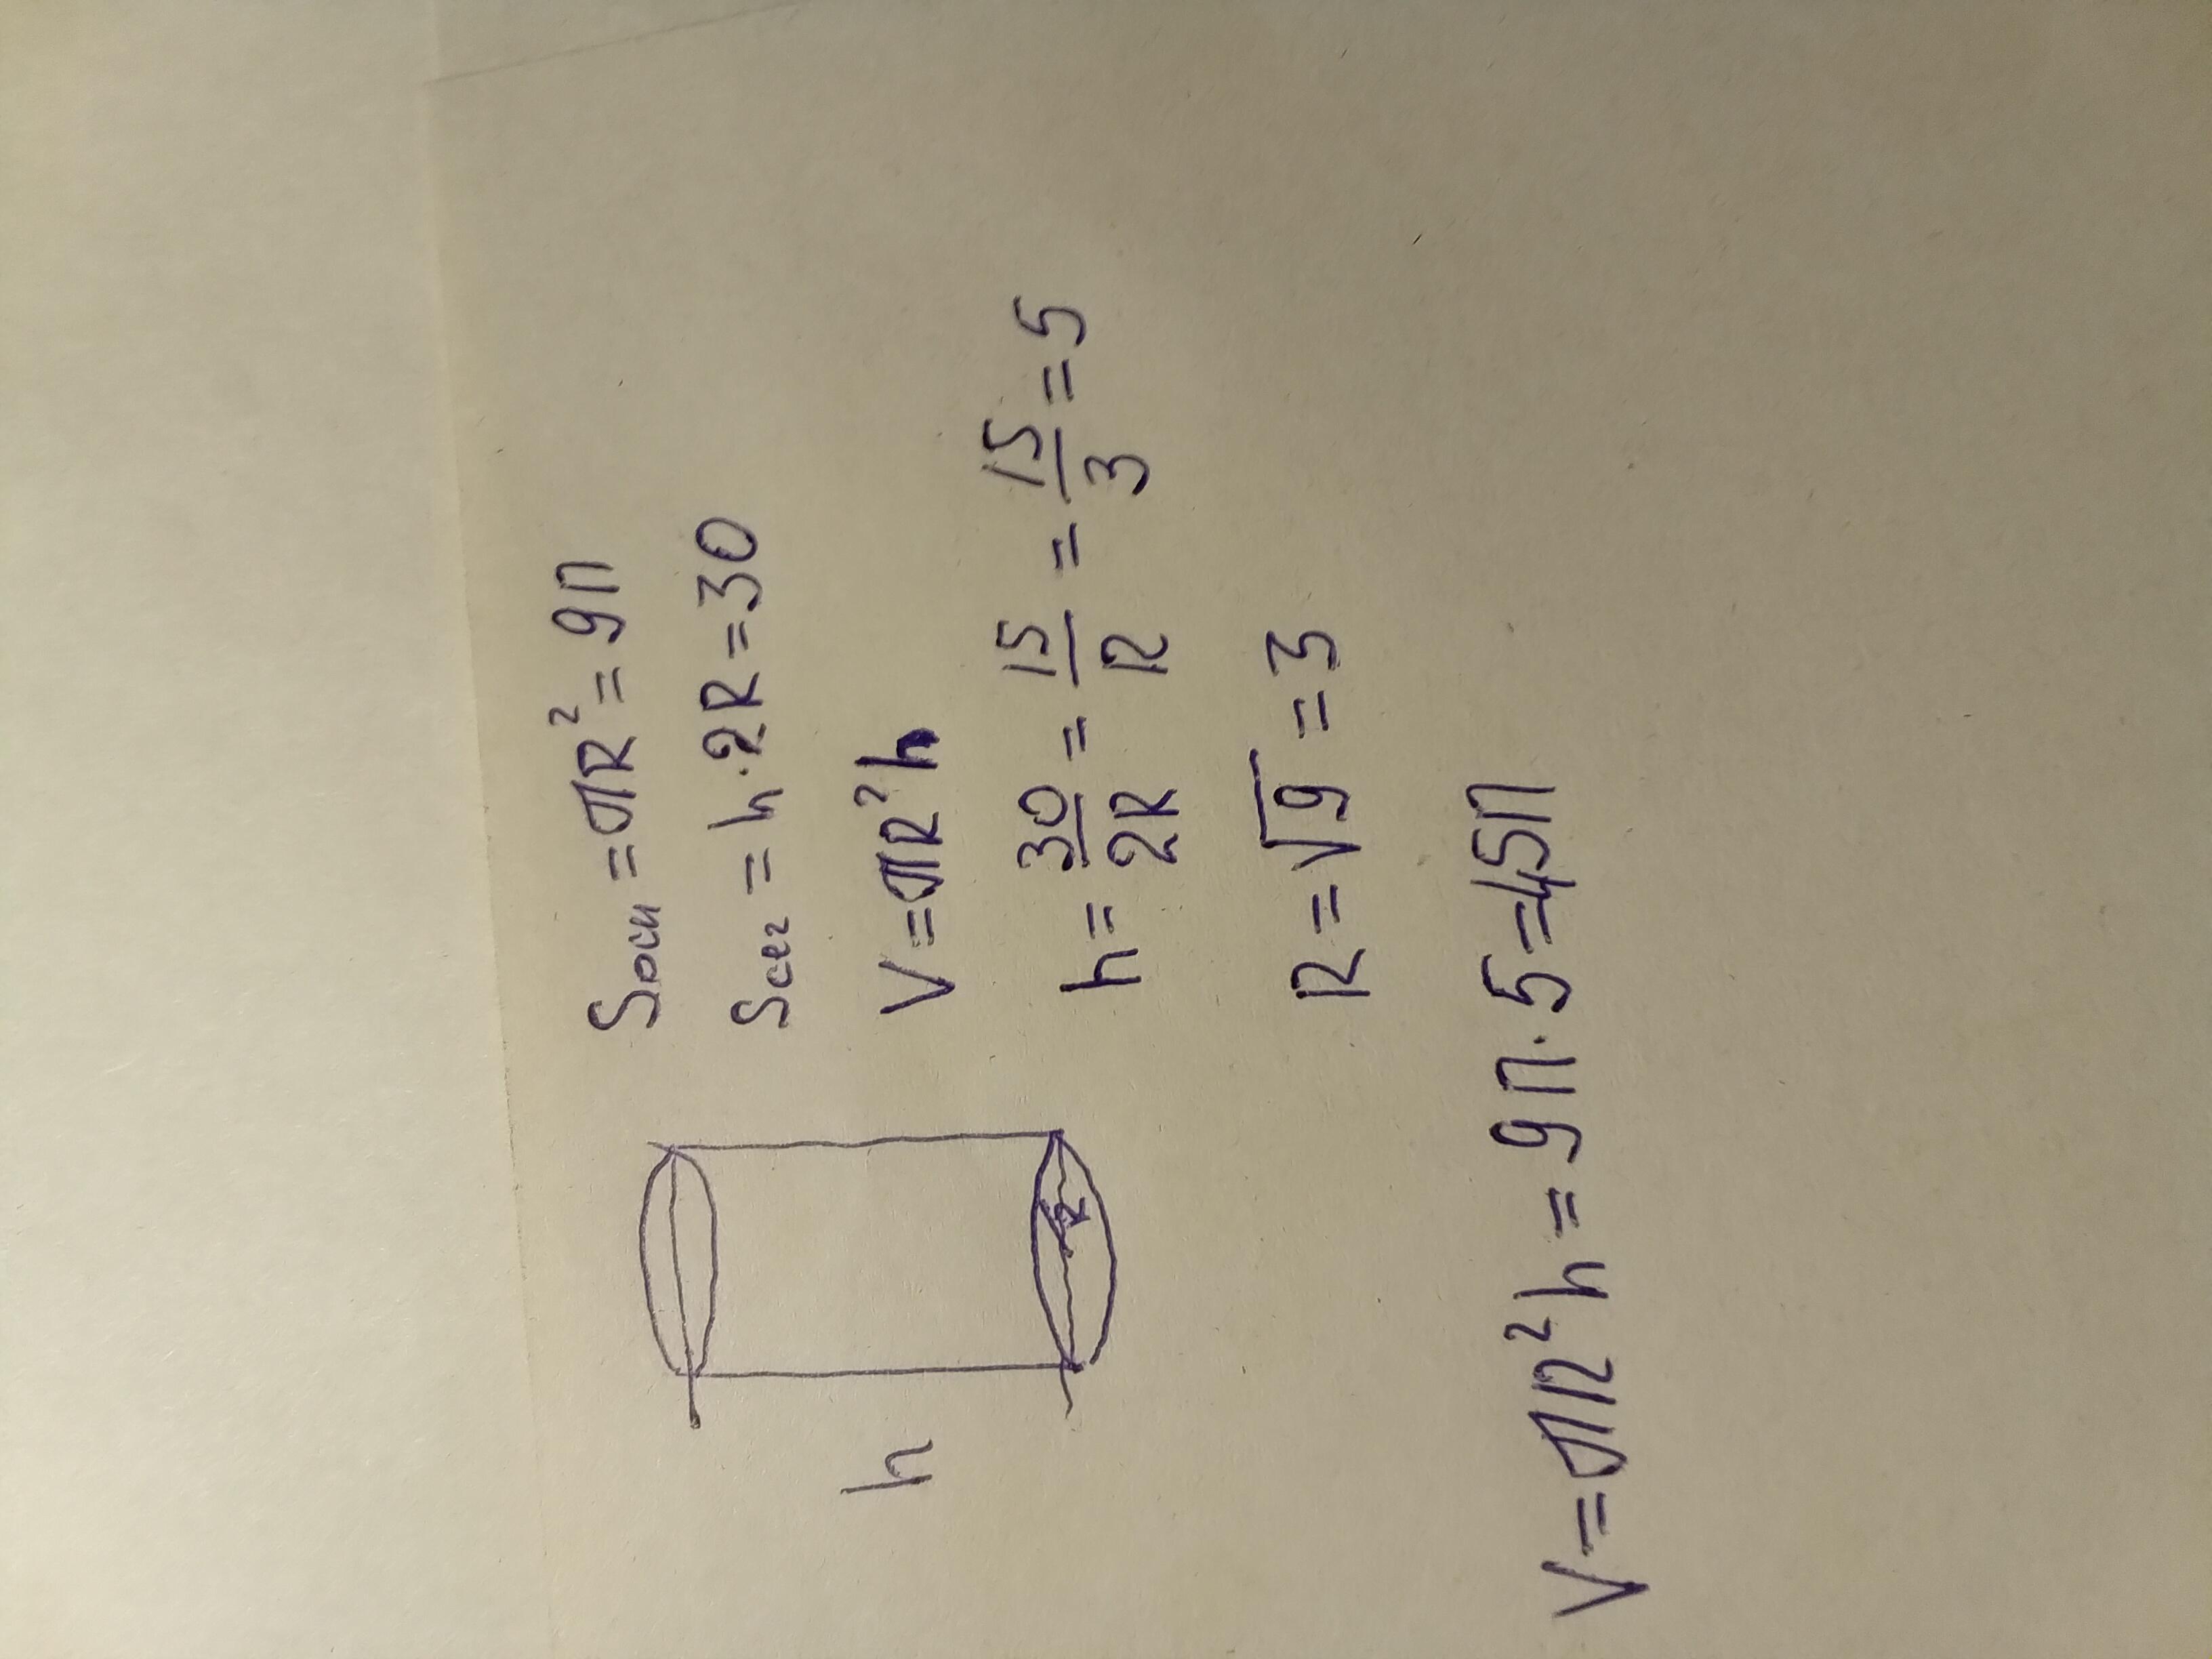 Sосн = πR² = 9π
Sсег = h · 2R = 30
V = πR²h
h = 30/2R = 15/R = 15/3 = 5
R = √9 = 3
h
R
V = πR²h = 9π · 5 = 45π